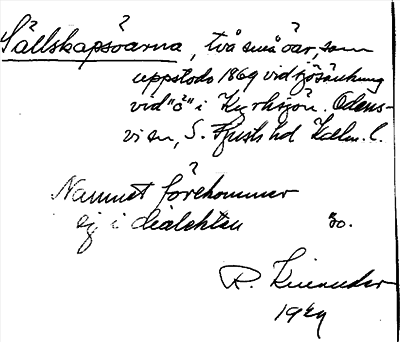 Sällskapsöarna, två små öar, som
uppstodo 1869 vid sjösänkning
vid "ö" i Kyrksjön. Odens-
vi sn, S. Tjusts hd Kalm. l.
Namnet förekommer
ej i dialekten so.
R.
1929